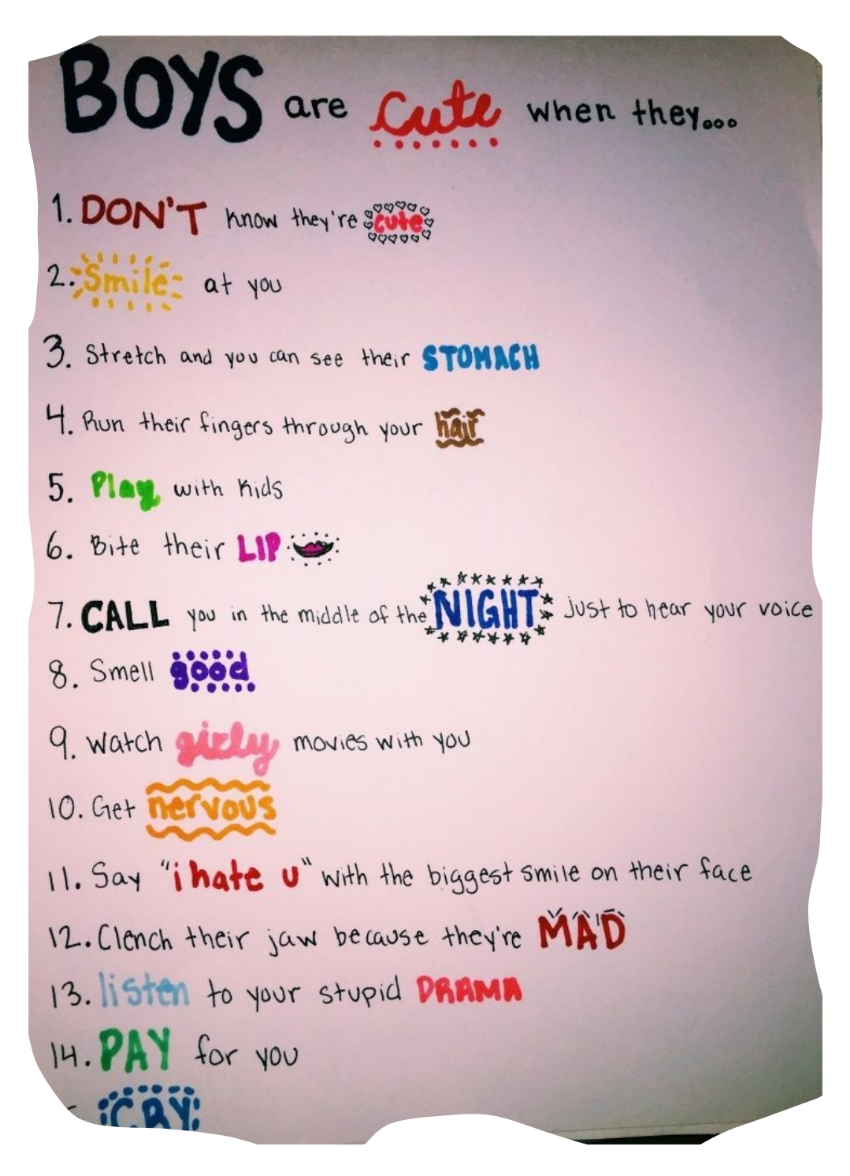 BOYS are cute when they...
1. DON'T know they're cute
2. Smile at you
3. Stretch and you can see their STOMACH
4. Run their fingers through your hair
5. Play with kids
6. Bite their LIP
7. CALL you in the middle of the NIGHT just to hear your voice
8. Smell good
9. Watch girly movies with you
10. Get nervous
11. Say "i hate u" with the biggest smile on their face
12. Clench their jaw because they're MAD
13. listen to your stupid DRAMA
14. PAY for you
CRY